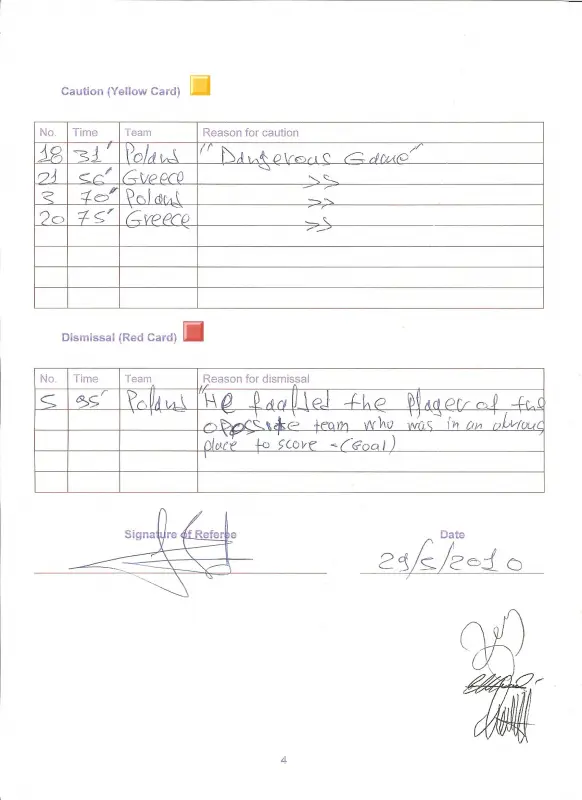 Caution (Yellow Card)
No. Time Team Reason for caution
18 31' Poland "Dangerous Game"
21 56' Greece >>
3 70' Poland >>
20 75' Greece >>
Dismissal (Red Card)
No. Time Team Reason for dismissal
5 Poland "He the Player of the
opossite team who was in an obvious
place to score - (Goal)
Signature of Referee Date
29/5/2010
4